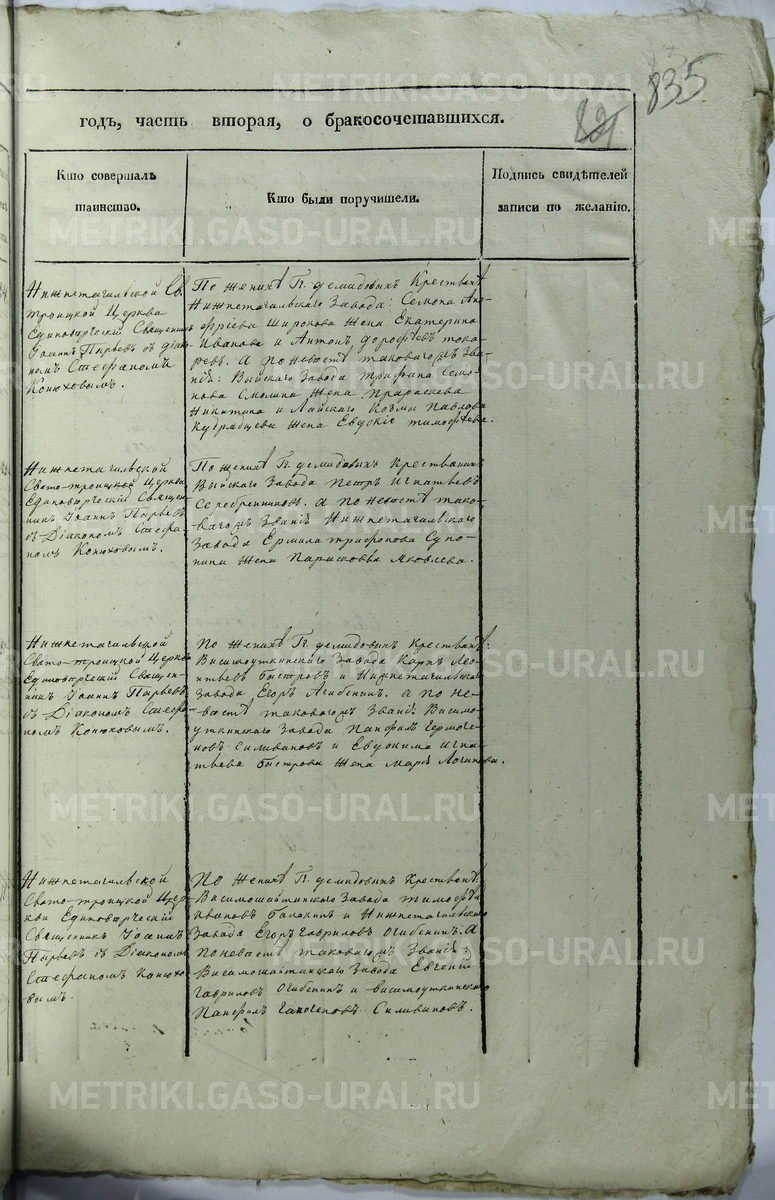 835
годъ, часть вторая, о бракосочетавшихся.
Кто совершалъ
таинство.
Кто были поручители.
Подпись свидѣтелей
записи по желанію.
Нижнетагильской Св
троицкой Церкви
Единовѣрческій Священникъ
Іоаннъ Пырьевъ съ діако
номъ Стефаномъ
Конюховымъ.
По женихѣ Гг. демидовыхъ Крестьянѣ
Нижнетагильскаго Завода: Семена Ано
фріева Широкова Жена Екатерина
Иванова и Антонъ дорофѣевъ тока
ревъ. А по невестѣ таковагожъ Зва
нія: Выйскаго Завода трифана Семе
нова Смолина Жена Прараскева
Никитина и Лайскаго Козмы Павлова
Жена Евдокіе тимофѣева.
Нижнетагильской
Свято-троицкой Церкви
Единовѣрческій Священ
никъ Іоаннъ Пырьевъ
съ Діакономъ Стефа
номъ Конюховымъ.
По женихѣ Гг. демидовыхъ Крестьянинъ
Выйскаго Завода Петръ Игнатьевъ
Серебренниковъ. а по невестѣ тако
вагожъ Званія Нижнетагильскаго
Завода Ермила трифонова
Жена Парасковья Яковлева.
Нижнетагильской
Свято-троицкой Церкви
Единовѣрческій Священ
никъ Іоаннъ Пырьевъ
съ Діакономъ Стефа
номъ Конюховымъ.
По женихѣ Гг. демидовыхъ Крестьянѣ:
Висимоуткинскаго Завода Карпъ Лео
нтьевъ Быстровъ и Нижнетагильскаго
Завода Егоръ Агибенинъ. а по не
вестѣ таковагожъ Званія Висимо
уткинскаго Завода Панфилъ Гермоге
новъ Силивановъ и Евдокима Игна
тьева Быстрова Жена Марѳа Логинова.
Нижнетагильской
Свято-троицкой Цер
кви Единовѣрческій
Священникъ Іоаннъ
Пырьевъ съ Діакономъ
Стефаномъ Конюхо
вымъ.
По женихѣ Гг. демидовыхъ Крестьянѣ:
Висимошайтанскаго Завода тимофѣй
Ивановъ Балакинъ и Нижнетагильскаго
Завода Егоръ Гавриловъ Огибенинъ. А
по невестѣ таковагожъ Званія:
Висимошайтанскаго Завода Евгеній
Гавриловъ Огибенинъ и висимоуткинскаго
Панфилъ Силивановъ.
METRIKI.GASO-URAL.RU